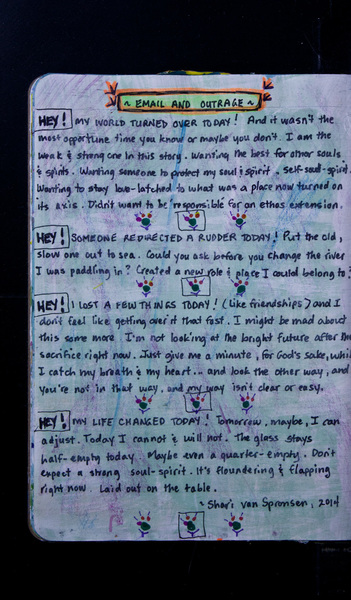 ~ EMAIL AND OUTRAGE ~
HEY! MY WORLD TURNED OVER TODAY! And it wasn't the
most opportune time you know or maybe you don't. I am the
weak & strong one in this story. Wanting the best for other souls
& spirits. Wanting someone to protect my soul & spirit. Self-soul-spirit.
Wanting to stay love-latched to what was a place now turned on
its axis. Didn't want to be responsible for an ethos extension.
HEY! SOMEONE REDIRECTED A RUDDER TODAY! Put the old,
slow one out to sea. Could you ask before you change the river
I was paddling in? Created a new role & place I could belong to?
HEY! I LOST A FEW THINGS TODAY! (like friendships) and I
don't feel like getting over it that fast. I might be mad about
this some more. I'm not looking at the bright future after the
sacrifice right now. Just give me a minute, for God's sake, while
I catch my breath & my heart... and look the other way, and
you're not in that way, and my way isn't clear or easy.
HEY! MY LIFE CHANGED TODAY! Tomorrow, maybe, I can
adjust. Today I cannot & will not. The glass stays
half-empty today. Maybe even a quarter-empty. Don't
expect a strong soul-spirit. It's floundering & flapping
right now. Laid out on the table.
~ Shari van Spronsen, 2014